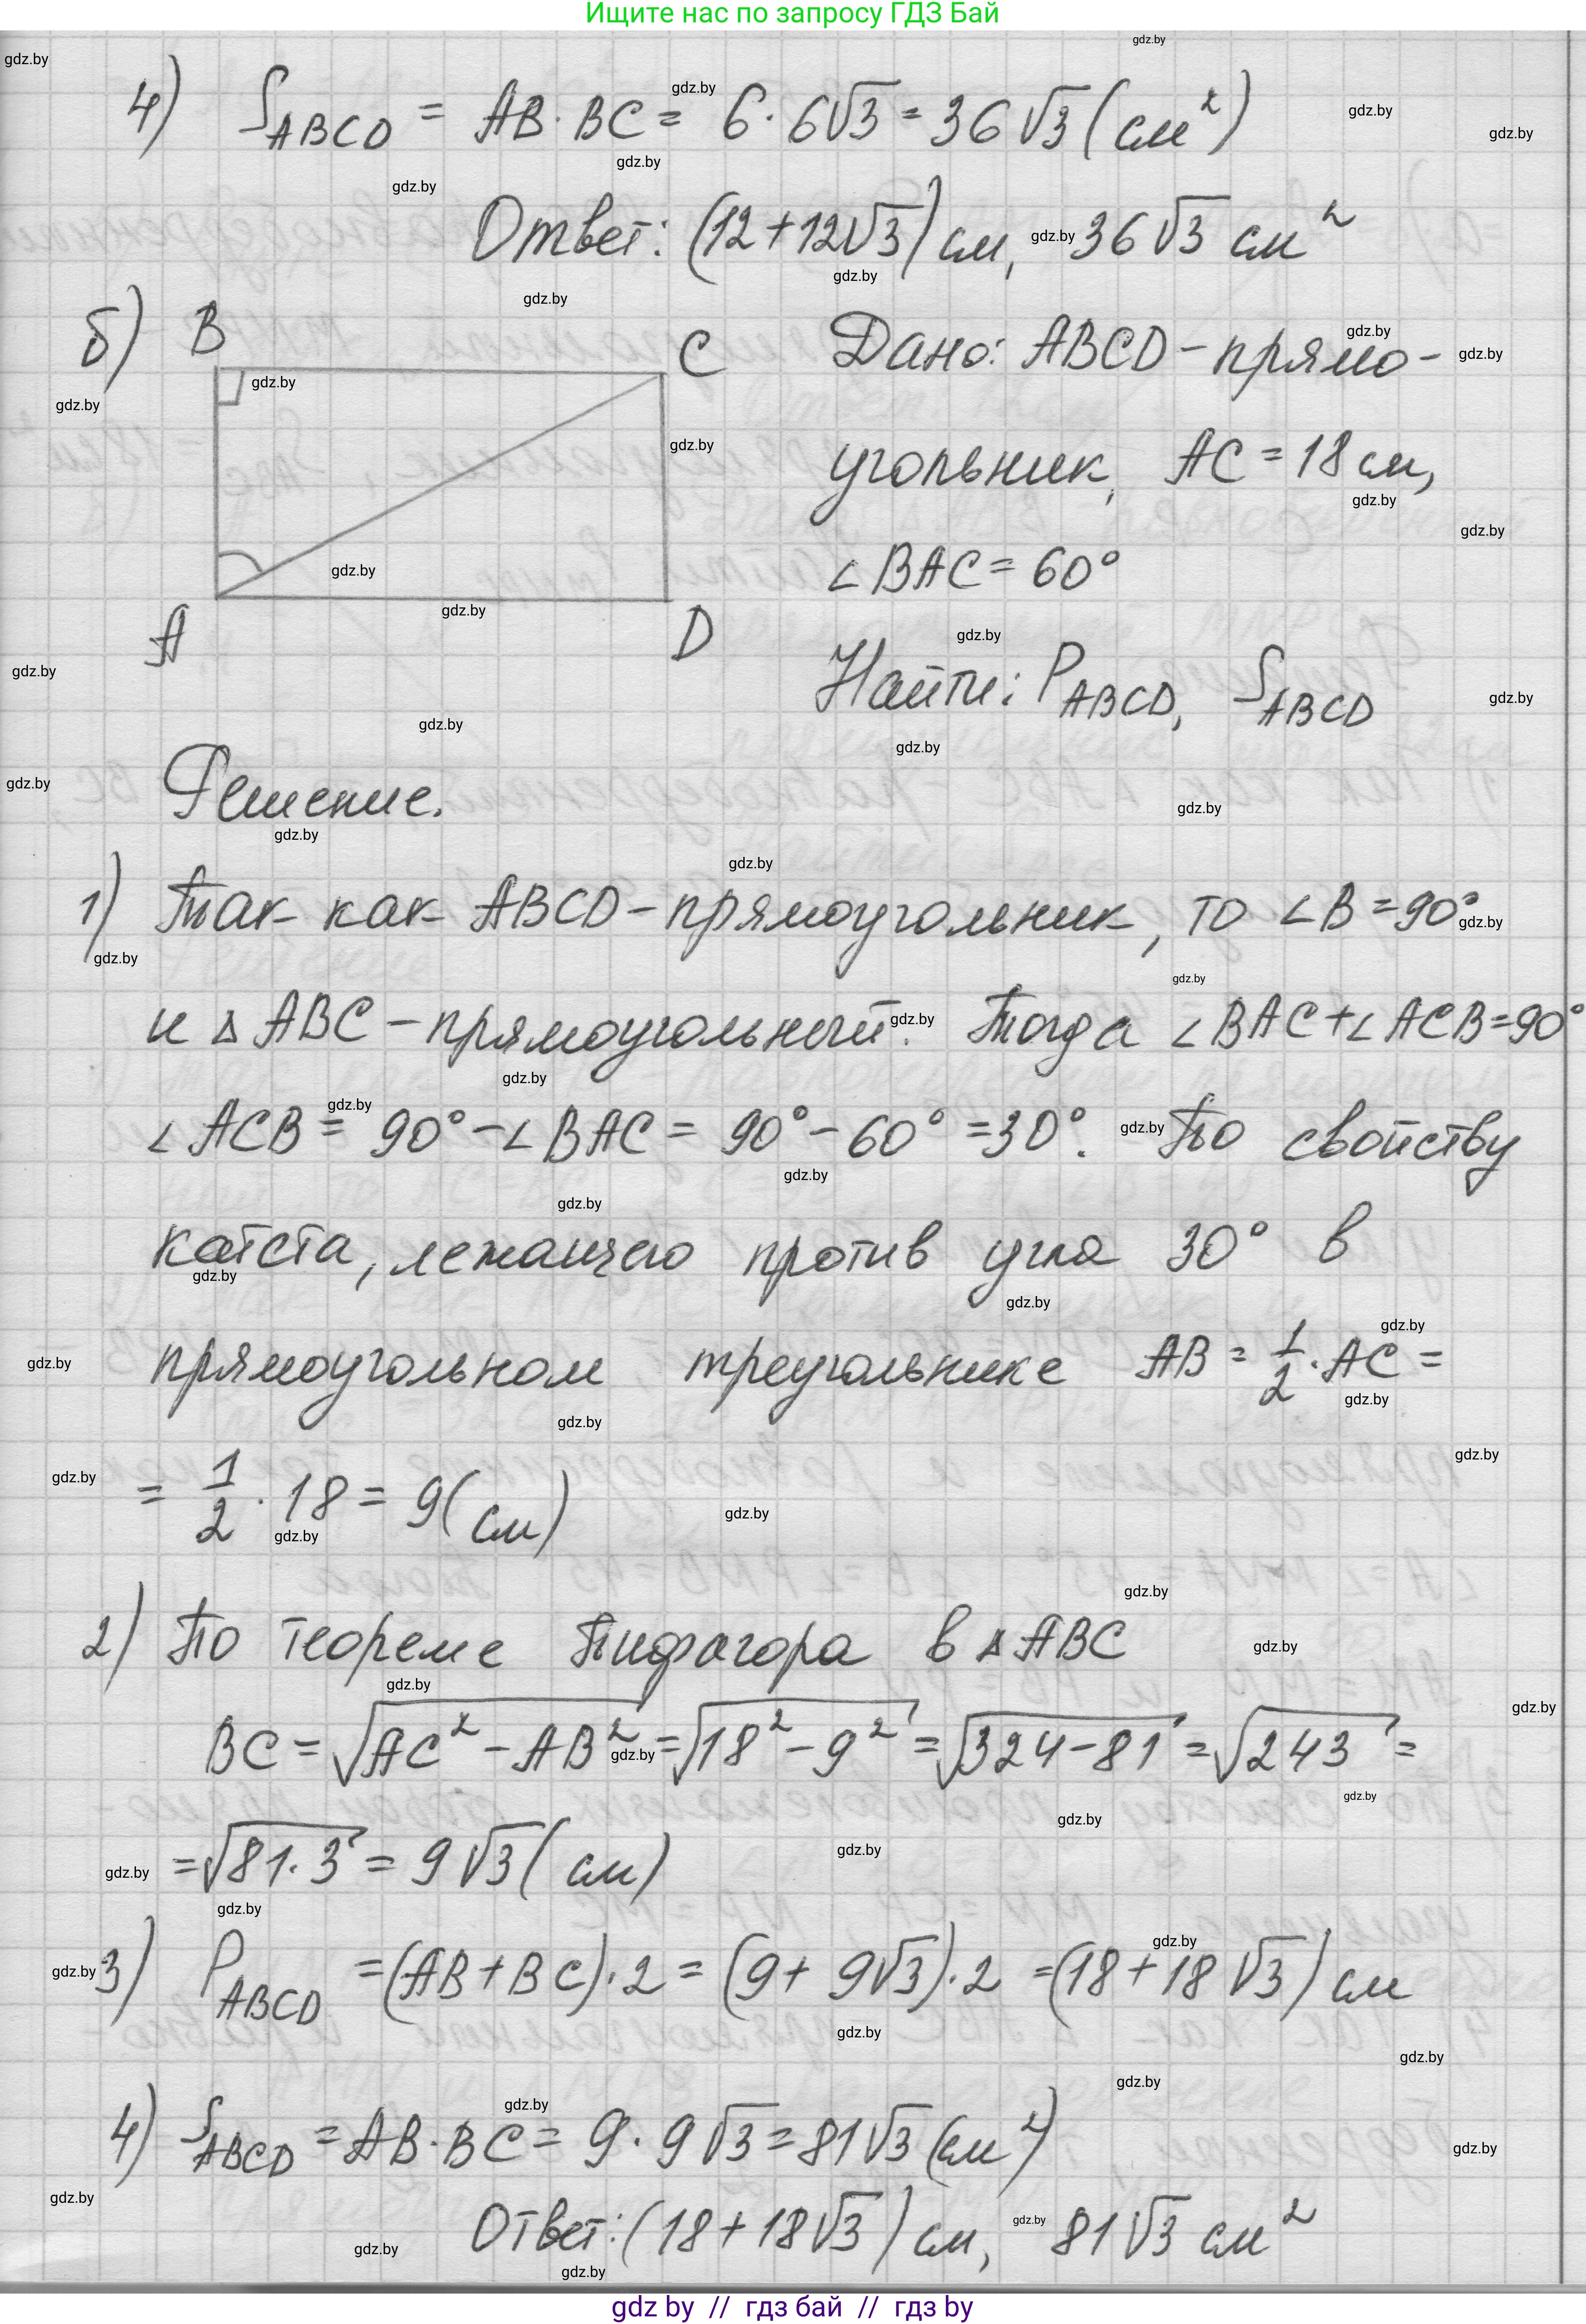 Ищите нас по запросу ГДЗ Бай
4) S ABCD = AB · BC = 6 · 6√3 = 36√3 (см²)
Ответ: (12+12√3) см, 36√3 см²
б) B C A D
Дано: ABCD – прямо-
угольник, AC = 18 см,
∠BAC = 60°
Найти: P ABCD, S ABCD
Решение.
1) Так как ABCD – прямоугольник, то ∠B = 90°
и △ABC – прямоугольный. Тогда ∠BAC + ∠ACB = 90°
∠ACB = 90° – ∠BAC = 90° – 60° = 30°. По свойству
катета, лежащего против угла 30° в
прямоугольном треугольнике AB = 1/2 · AC =
= 1/2 · 18 = 9 (см)
2) По теореме Пифагора в △ABC
BC = √(AC² – AB²) = √(18² – 9²) = √(324 – 81) = √243 =
= √(81·3) = 9√3 (см)
3) P ABCD = (AB + BC) · 2 = (9 + 9√3) · 2 = (18 + 18√3) см
4) S ABCD = AB · BC = 9 · 9√3 = 81√3 (см²)
Ответ: (18 + 18√3) см, 81√3 см²
gdz by // гдз бай // гдз by